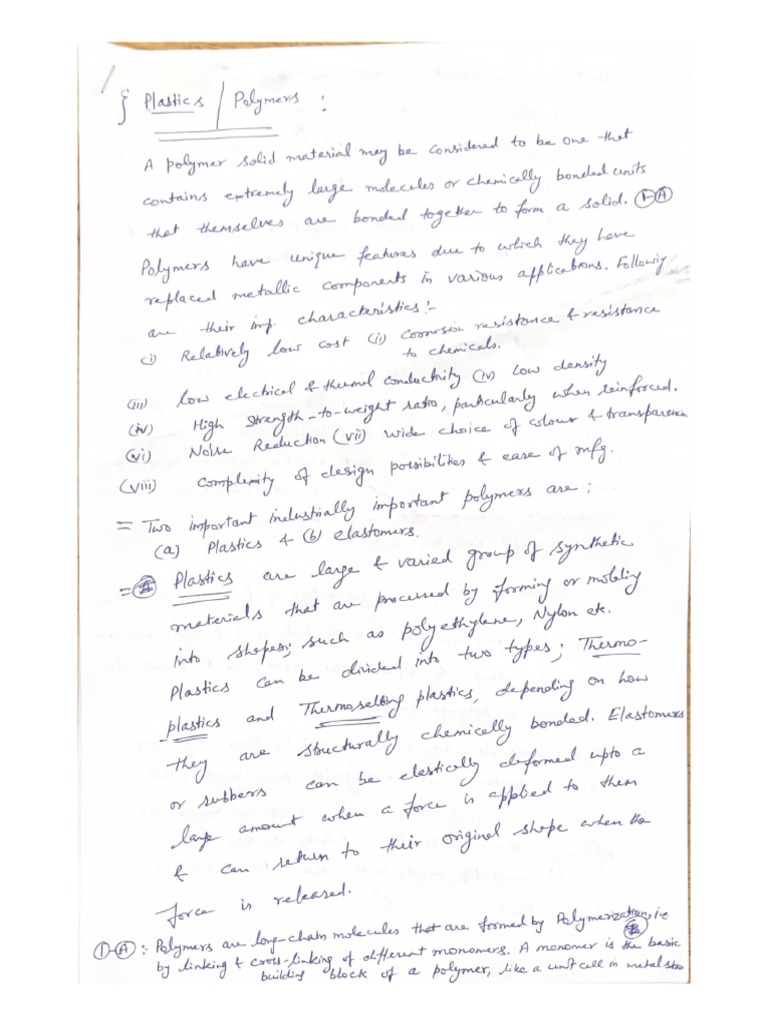 { Plastics / Polymers :
A polymer solid material may be considered to be one that
contains extremely large molecules or chemically bonded units
that themselves are bonded together to form a solid. (1-A)
Polymers have unique features due to which they have
replaced metallic components in various applications. Following
are their imp. characteristics:-
(i) Relatively low cost (ii) Corrosion resistance & resistance
to chemicals.
(iii) Low electrical & thermal conductivity (iv) Low density
(iv) High Strength-to-weight ratio, particularly when reinforced.
(vi) Noise Reduction (vii) wide choice of colour & transparen
(viii) Complexity of design possibilities & ease of mfg.
= Two important industrially important polymers are:
(a) Plastics & (b) elastomers.
= Plastics are large & varied group of synthetic
materials that are processed by forming or molding
into shapes; such as polyethylene, Nylon etc.
Plastics can be divided into two types; Thermo-
plastics and Thermosetting plastics, depending on how
they are structurally chemically bonded. Elastomers
or rubbers can be elastically deformed upto a
large amount when a force is applied to them
& can return to their original shape when the
force is released.
(1-A): Polymers are long-chain molecules that are formed by Polymerization, i.e
by linking & cross-linking of different monomers. A monomer is the basic
building block of a polymer, like a unit cell in metal